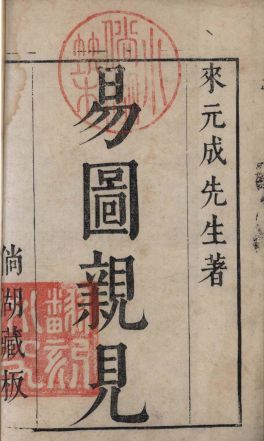 來元成先生著
易圖親見
倘湖藏板